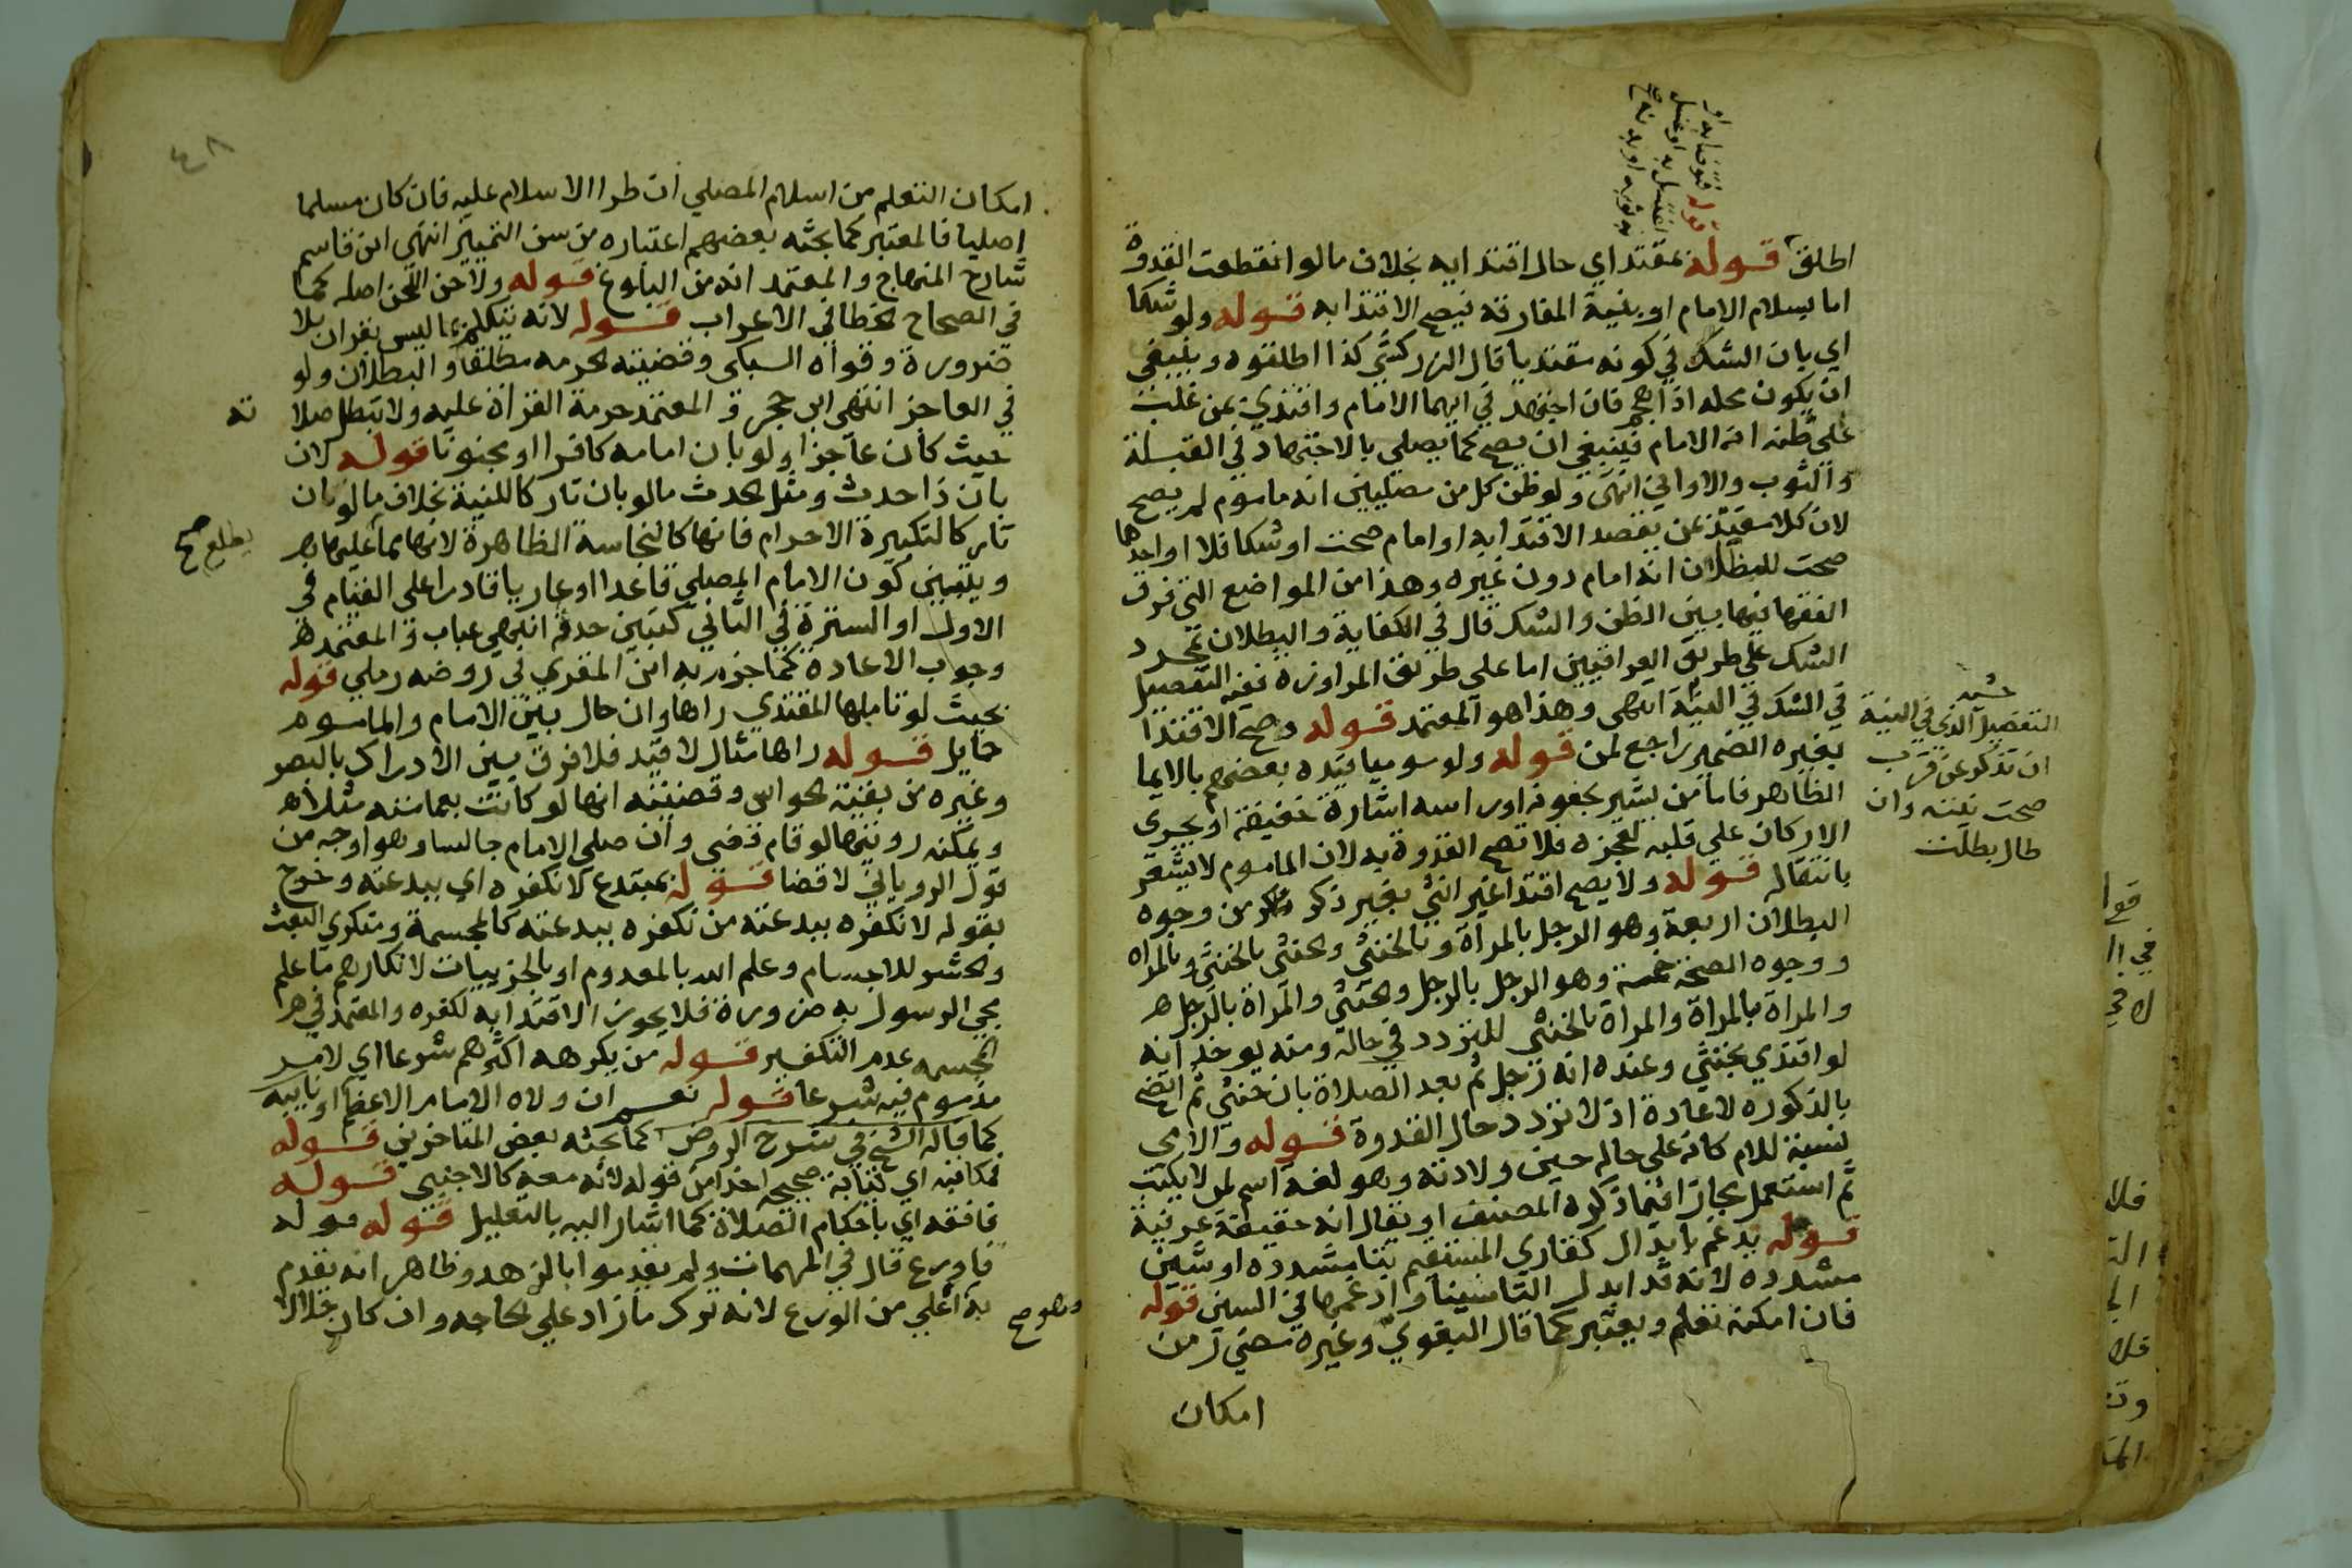 اطلق قوله بمقتد اي حال اقتدايه بخلاف مالو انقطعت القدوة
اما بسلام الامام او بنية المفارقة فيصح الاقتدا به قوله ولو شكا
اي بان الشك في كونه مقتديا قال الزركشي كذا اطلقوه وينبغي
ان يكون محله اذا هجم فان اجتهد في ايهما الامام واقتدي بمن غلب
علي ظنه انه الامام فينبغي ان يصح كما يصلي بالاجتهاد في القبلة
والثوب والاواني انتهى ولو ظن كل من مصليين انه ماموم لم يصح
لان كلا مقتد بمن يقصد الاقتدا به او امام صحت او شكا فلا او احدها
صحت للظان انه امام دون غيره وهذا من المواضع التي فرق
الفقها فيها بين الظن والشك قال في الكفاية والبطلان بمجرد
الشك علي طريق العراقيين اما علي طريق المراوزه ففيه التفصيل
في الشك في النية انتهى وهذا هو المعتمد قوله وصح الاقتدا
بغيره الضمير راجع لمن قوله ولو موميا قيده بعضهم بالايما
الظاهر فاما من يشير بجفونه او راسه اشارة خفيفة او يجرى
الاركان علي قلبه لعجزه فلا تصح القدوة به لان الماموم لا يشعر
بانتقاله قوله ولا يصح اقتدا غير انثي بغير ذكر من وجوه
البطلان اربعة وهو الرجل بالمراة وبالخنثي وخنثي بالخنثي وبالمراه
ووجوه الصحة خمسة وهو الرجل بالرجل وخنثي والمراة بالرجل
والمراة بالمراة والمراة بالخنثي للتردد في حاله ومنه يوخذ انه
لو اقتدي بخنثي وعنده انه رجل ثم بعد الصلاة بان خنثي ثم اتضح
بالذكوره لا اعادة اذ لا تردد حال القدوة قوله والامي
نسبة للام كانه علي حاله حين ولادته وهو لغة اسم لمن لا يكتب
ثم استعمل مجازا فيما ذكره المصنف او يقال انه حقيقة عرفية
قوله يدغم بابدال كقاري المستقيم بتا مشدده او سين
مشدده لانه قد ابدل التا سينا وادغمها في السين قوله
فان امكنه تعلم ويعتبر كما قال البغوي وغيره مضي زمن
امكان
التفصيل الذي في النية
ان تذكر عن قرب
صحت نيته وان
طال بطلت
٤٨
امكان التعلم من اسلام المصلي ان طرا الاسلام عليه فان كان مسلما
اصليا فالمعتبر كما بحثه بعضهم اعتباره من سن التمييز انتهى ابن قاسم
شارح المنهاج والمعتمد انه من البلوغ قوله ولاحن اللحن اصله كما
في الصحاح الخطا في الاعراب قوله لانه يتكلم بما ليس بقران بلا
ضرورة وقواه السبكى وقضيته الحرمه مطلقا والبطلان ولو
في العاجز انتهى ابن حجر و المعتمد حرمة القراة عليه ولا تبطل صلا
ته
حيث كان عاجزا ولو بان امامه كافرا او مجنونا قوله لان
بان ذا حدث ومثل الحدث مالو بان تاركا للنية بخلاف مالو بان
تاركا لتكبيرة الاحرام فانها كالنجاسة الظاهرة لانها مما عليها
يطلع صح
وتبين كون الامام المصلي قاعدا او عاريا قادرا علي القيام في
الاول او السترة في الثاني كتبين حدثه انتهي عباب و المعتمد
وجوب الاعادة كما جزم به ابن المقري في روضه رملي قوله
بحيث لو تاملها المقتدي راها وان حال بين الامام والماموم
حايل قوله راها مثال لا قيد فلا فرق بين الادراك بالبصر
وغيره من بقية الحواس وقضيته انها لو كانت بعمامته مثلا
ويمكنه رويتها لو قام قضي وان صلي الامام جالسا وهو اوجه من
قول الروياني لا قضا قوله بمبتدع لا نكفره اي ببدعته وخرج
بقوله لا نكفره ببدعته من نكفره ببدعته كالمجسمة ومنكري البعث
والحشر للاجسام وعلم الله بالمعدوم او بالجزييات لانكارهم ما علم
مجي الرسول به ضرورة فلا يجوز الاقتدا به لكفره والمعتمد في
المجسمه عدم التكفير قوله من يكرهه اكثرهم شرعا اي لامر
مذموم فيه شرعا قوله نعم ان ولاه الامام الاعظم او نايبه
كما قاله الشيخ في شرح الروض كما بحثه بعض المتاخرين قوله
فمكاتب اي كتابة صحيحة اخذا من قوله لانه معه كالاجنبي قوله
فافقه اي باحكام الصلاة كما اشار اليه بالتعليل قوله قوله
فاورع قال في المهمات ولم يعتبروا الزهد وظاهر انه يقدم
به اعلي من الورع لانه ترك ما زاد علي الحاجه وان كان حلالا
وهو صح